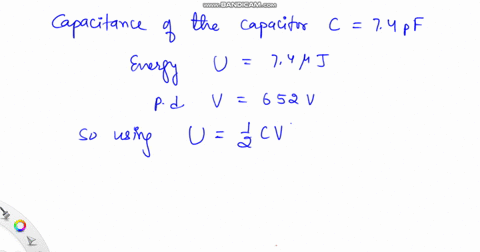 www.BANDICAM.com
Capacitance of the capacitor C = 7.4 pF
Energy U = 7.4 μJ
p.d V = 652 V
So using U = 1/2 CV